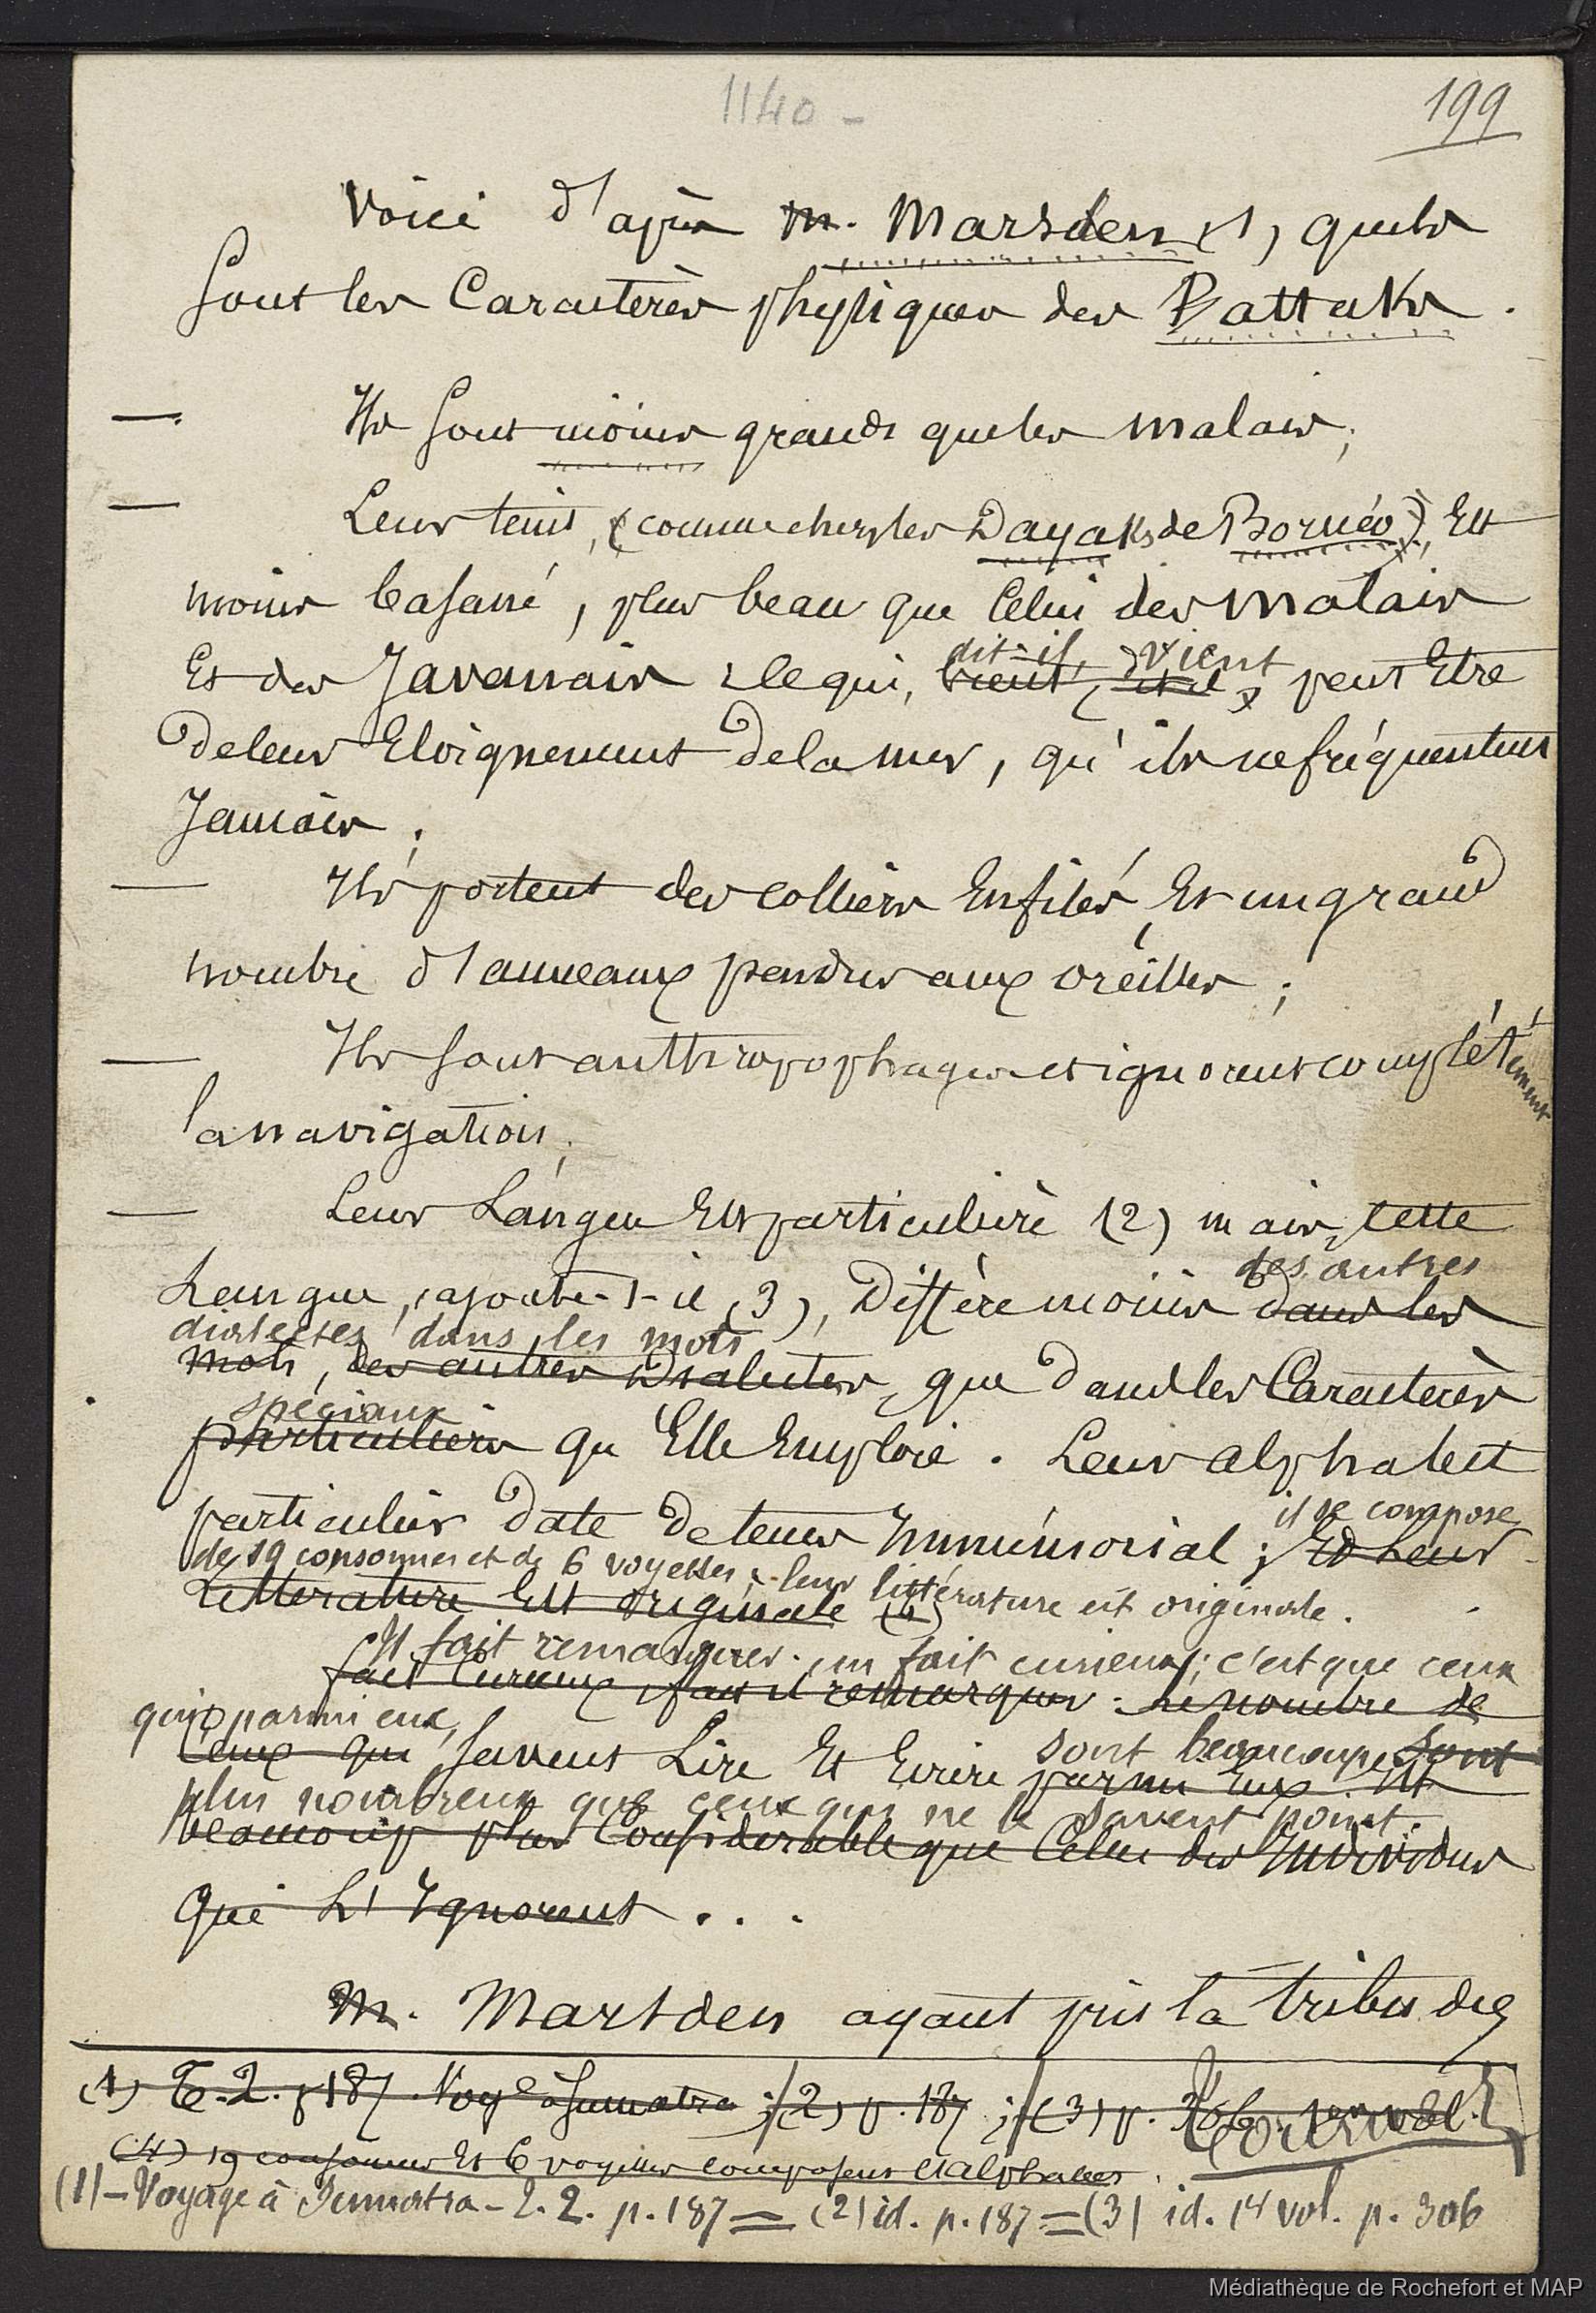 1140 -
199
Voici d'après M. Marsden (1) quels
sont les Caractères physiques des Battaks.
— Ils sont moins grands que les malais;
— Leur teint, (comme chez les Dayaks de Bornéo), Est
moins basané, plus beau que Celui des Malais
Et des Javanais : Ce qui, vient, dit-il, peut Etre
dit-il, vient
de leur Eloignement de la mer, qu'ils ne fréquentent
Jamais;
— Ils portent des colliers Enfilés, Et un grand
nombre d'anneaux pendus aux oreilles;
— Ils sont anthropophages et ignorent complétement
la navigation;
— Leur Langue Est particulière (2) mais, cette
des autres
Langue, ajoute-t-il (3), Diffère moins dans les
dialectes dans les mots
mots, des autres Dialectes, que dans les Caractères
spéciaux
particuliers qu'Elle Emploie. Leur alphabet
il se compose
particulier date de tems Immémorial; Et Leur
de 19 consonnes et de 6 voyelles; leur littérature est originale.
Litterature Est Originale (4)
Il fait remarquer un fait curieux; c'est que ceux
fait Curieux, fait il remarquer. Le nombre de
qui, parmi eux,
Ceux qui savent Lire Et Ecrire parmi Eux. Est
sont beaucoup sont
plus nombreux que ceux qui ne le savent point.
beaucoup plus Considerable que Celui des Individus
Qui L'Ignorent . . .
M. Marsden ayant pris la tribu des
(1) T. 2. p 187. Voyage à Sumatra; (2) p. 187; (3) p. 306. 1er vol.
(4) 19 consonnes Et 6 voyelles composent cet alphabet.
(1) – Voyage à Sumatra – T. 2. p. 187 = (2) id. p. 187 = (3) id. 1er vol. p. 306
Médiathèque de Rochefort et MAP